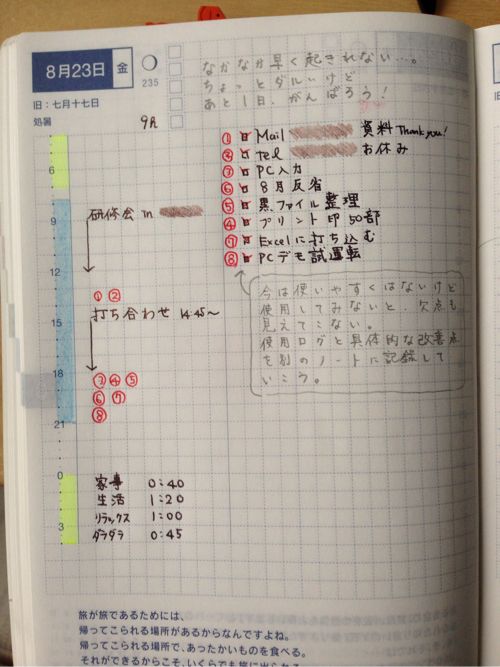 8月23日 金
235
旧：七月十七日
処暑
9R
なかなか早く起きれない…。
ちょっとダルいけど
あと1日、がんばろう！
① Mail 資料 Thank you!
② tel お休み
③ PC入力
⑥ 8月反省
⑤ 黒ファイル整理
④ プリント印 50部
⑦ Excelに打ち込む
⑧ PCデモ試運転
6
9
12
15
18
21
0
3
研修会 in
① ②
打ち合わせ 14:45〜
③ ④ ⑤
⑥ ⑦
⑧
今は使いやすくはないけど
使用してみないと、欠点も
見えてこない。
使用ログと具体的な改善点
を別のノートに記録して
いこう。
家事 0:40
生活 1:20
リラックス 1:00
ダラダラ 0:45
旅が旅であるためには、
帰ってこられる場所があるからなんですよね。
帰ってこられる場所で、あったかいものを食べる。
それができるからこそ、いくらでも旅に出られる